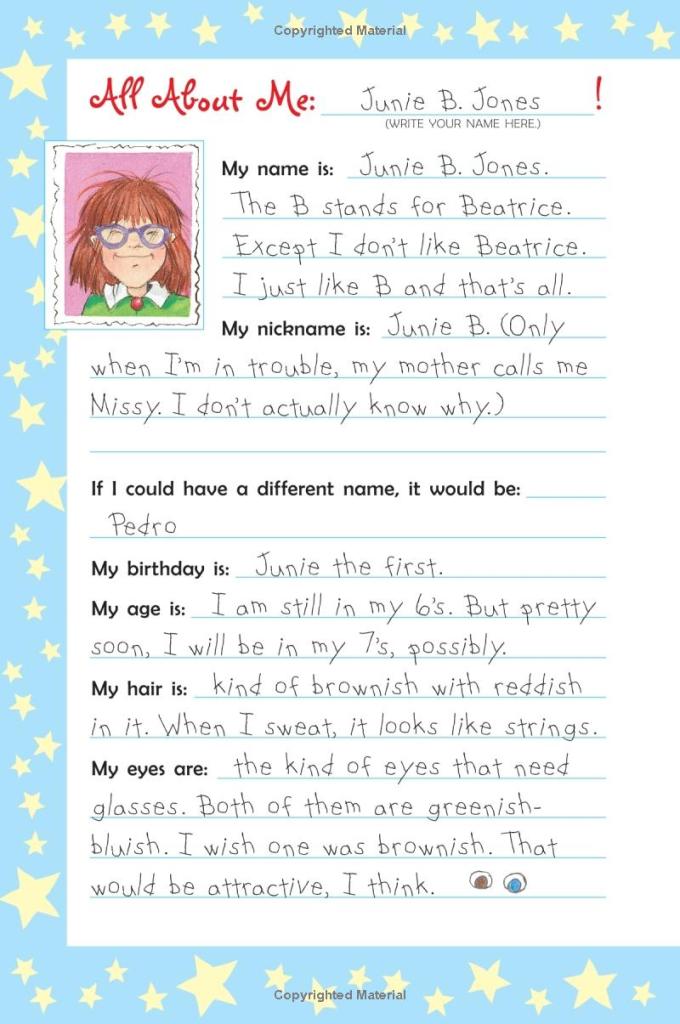 Copyrighted Material
All About Me: Junie B. Jones!
(WRITE YOUR NAME HERE.)
My name is: Junie B. Jones.
The B stands for Beatrice.
Except I don't like Beatrice.
I just like B and that's all.
My nickname is: Junie B. (Only
when I'm in trouble, my mother calls me
Missy. I don't actually know why.)
If I could have a different name, it would be:
Pedro
My birthday is: Junie the first.
My age is: I am still in my 6's. But pretty
soon, I will be in my 7's, possibly.
My hair is: kind of brownish with reddish
in it. When I sweat, it looks like strings.
My eyes are: the kind of eyes that need
glasses. Both of them are greenish-
bluish. I wish one was brownish. That
would be attractive, I think.
Copyrighted Material